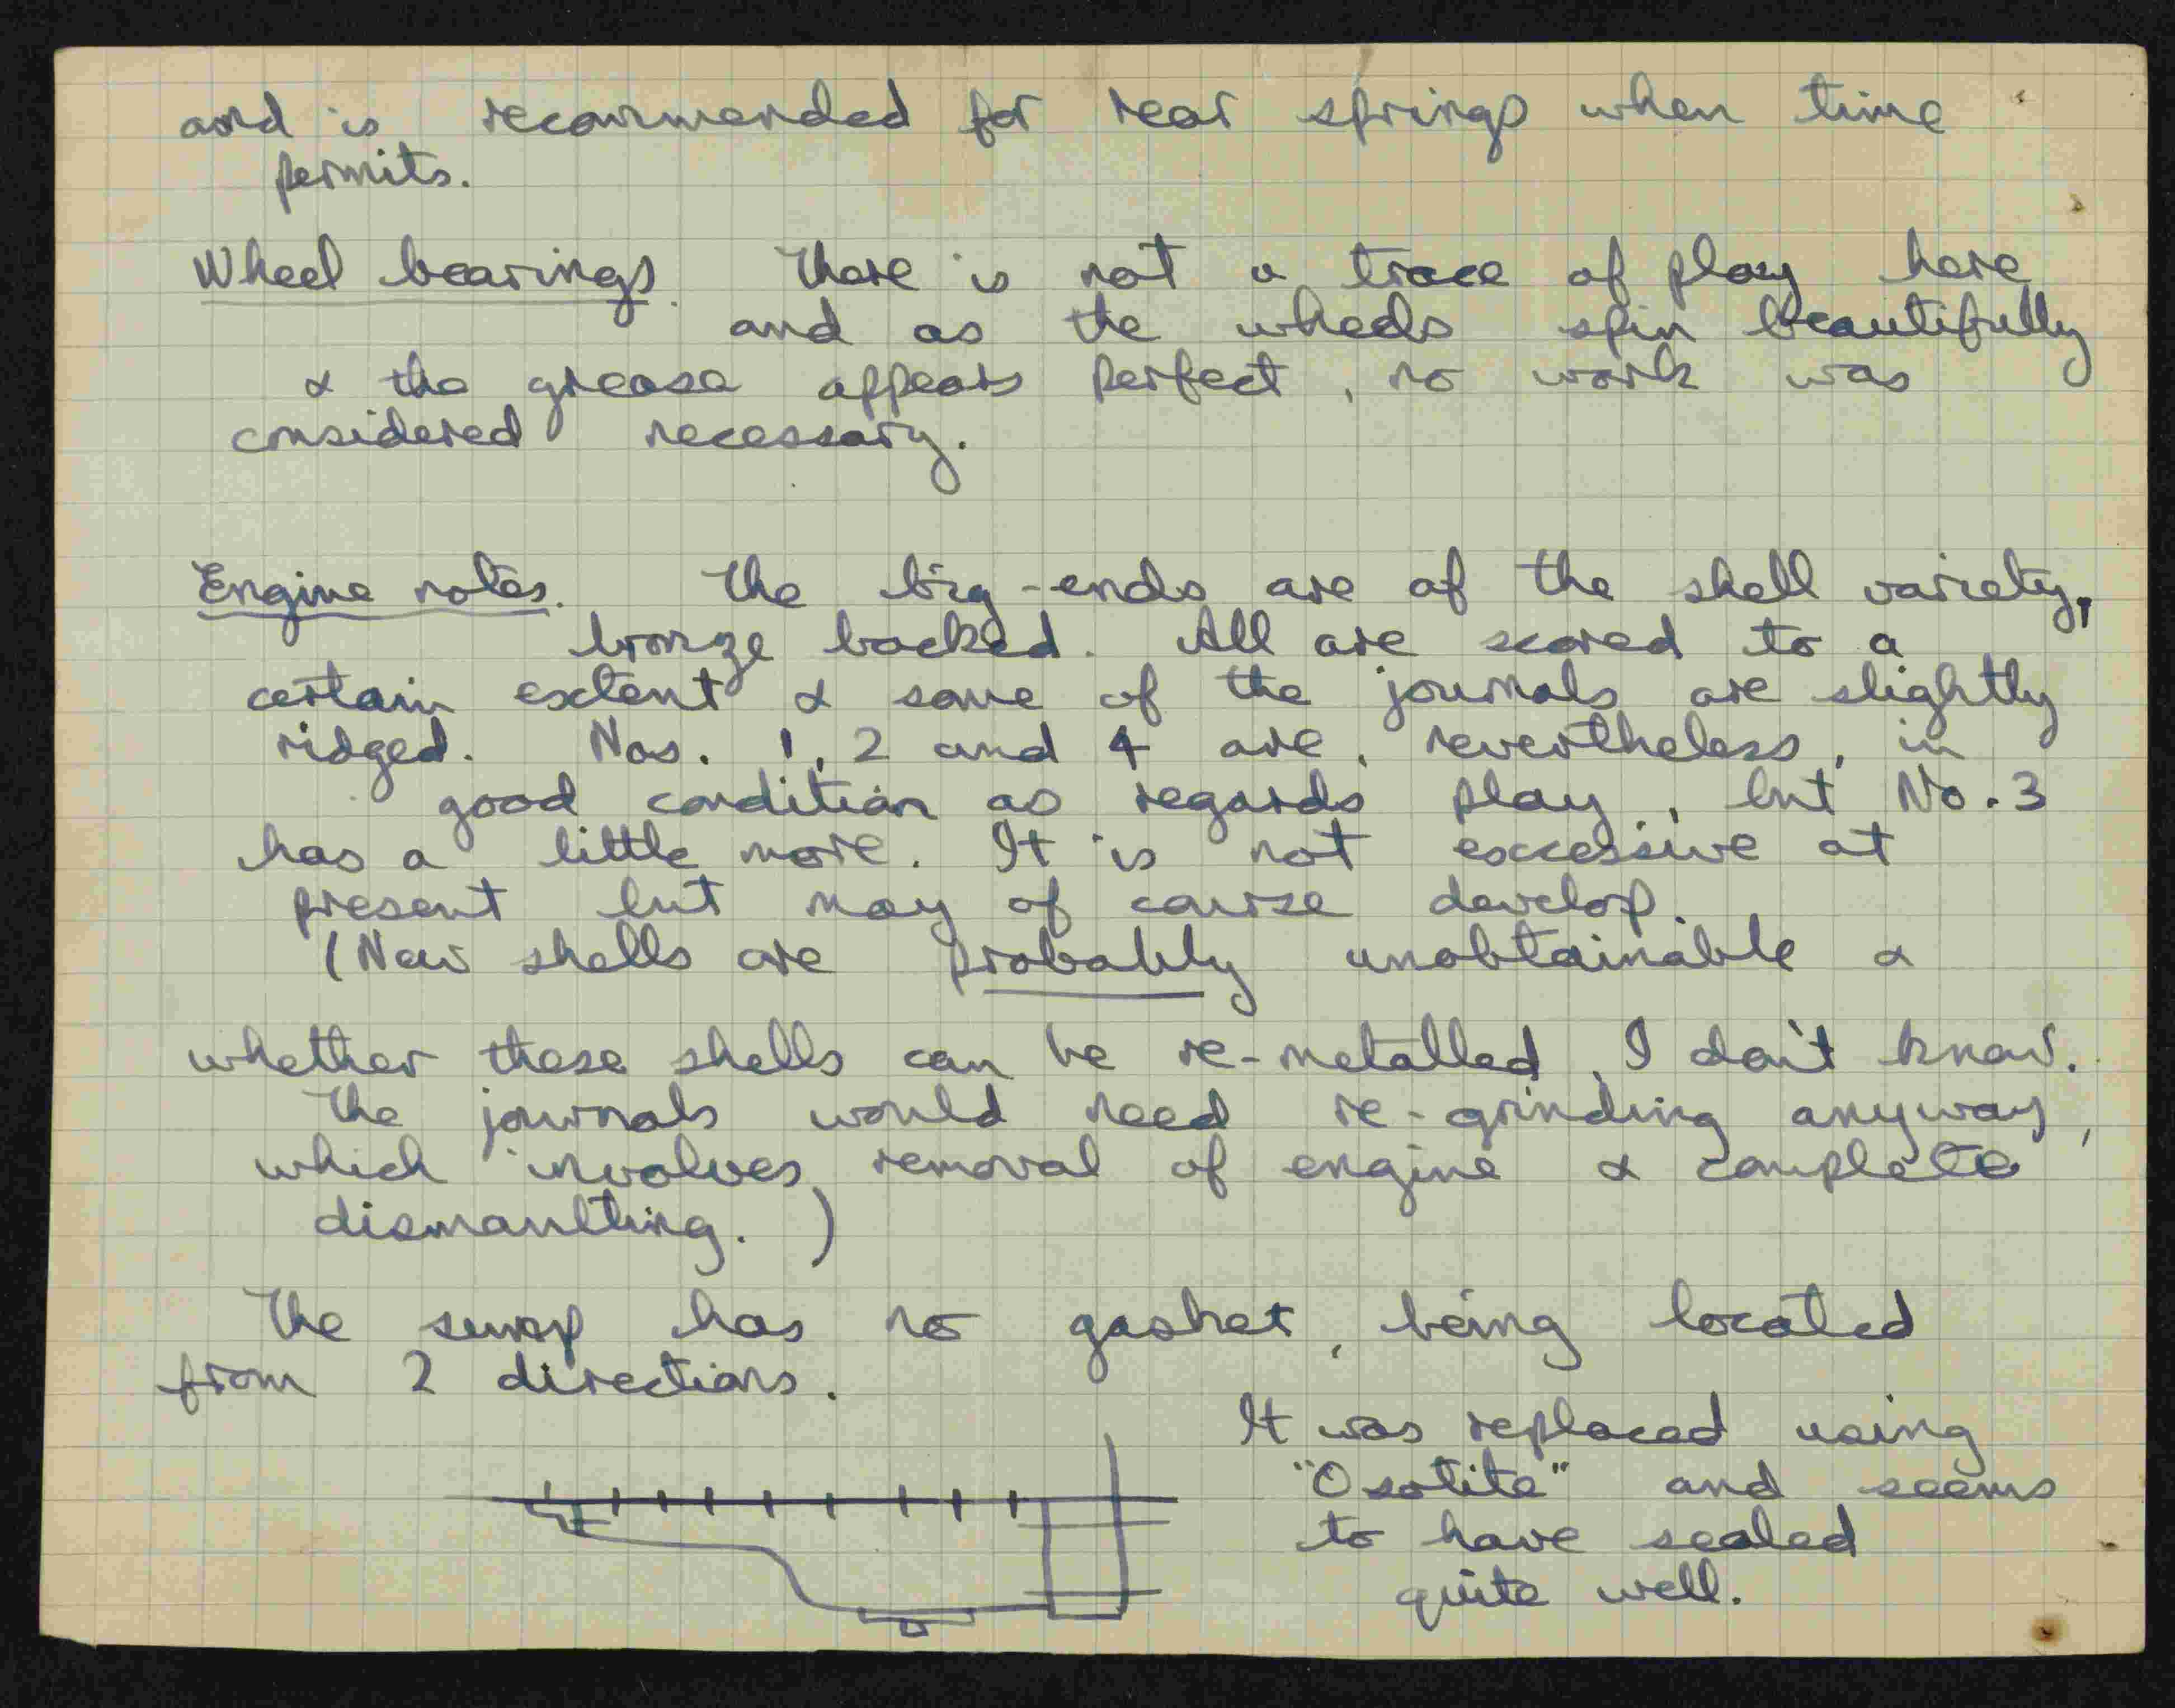 and is recommended for rear springs when time
permits.
Wheel bearings. There is not a trace of play here
and as the wheels spin beautifully
& the grease appears perfect, no work was
considered necessary.
Engine notes. The big-ends are of the shell variety,
bronze backed. All are scored to a
certain extent & some of the journals are slightly
ridged. Nos. 1, 2 and 4 are, nevertheless, in
good condition as regards play, but No. 3
has a little more. It is not excessive at
present but may of course develop.
(New shells are probably unobtainable &
whether these shells can be re-metalled, I don't know.
The journals would need re-grinding anyway,
which involves removal of engine & complete
dismantling.)
The sump has no gasket, being located
from 2 directions.
It was replaced using
"Osotite" and seems
to have sealed
quite well.